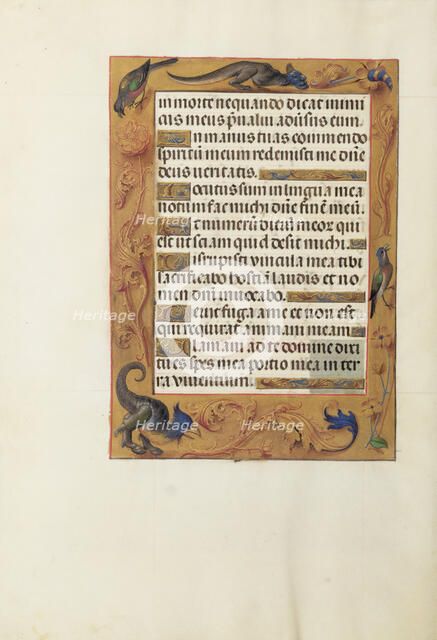 in morte nequando dicat inimi
cus meus p̄ualui adūsus eum
In manus tuas commendo
spiritū meum redemisti me dn̄e
deus veritatis.
Locutus sum in lingua mea
notum fac michi dn̄e finē meū.
Et numerū dierū meor̄ qui
est ut sciam quid desit michi.
Dirupisti vincula mea tibi
sacrificabo hostiā laudis et no
men dn̄i invocabo.
Periit fuga a me et non est
qui requirat animam meam
Clamavi ad te domine dixi
tu es spes mea portio mea in ter
ra viventium.
Heritage
Heritage
Heritage
Heritage
Heritage
Heritage